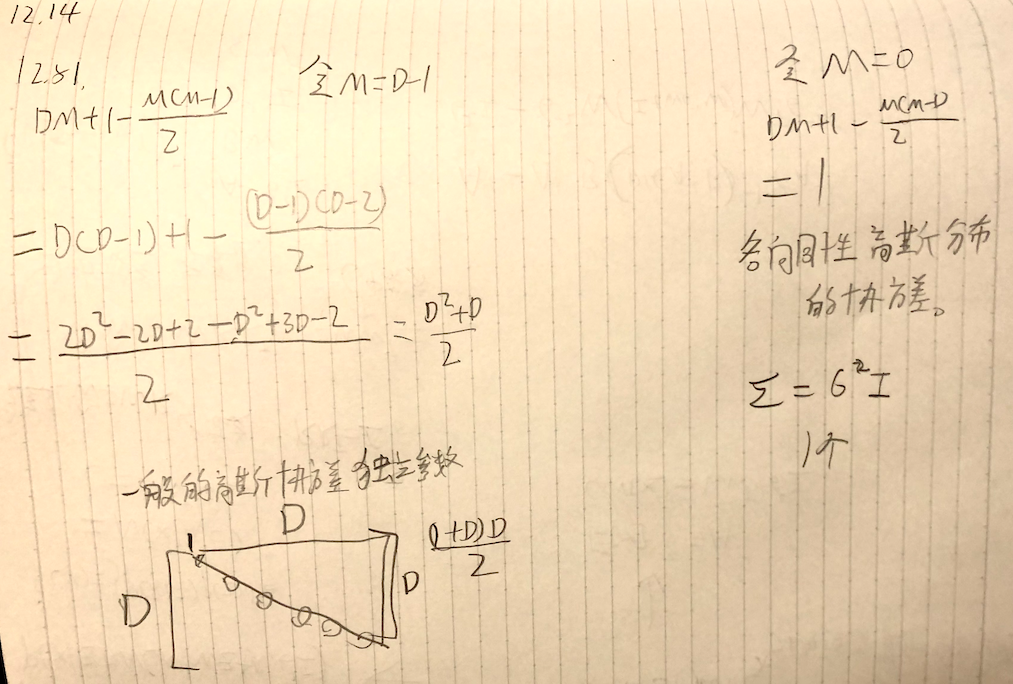 12.14
12.51.
DM+1-\frac{M(M-1)}{2} 令 M=D-1
=D(D-1)+1-\frac{(D-1)(D-2)}{2}
=\frac{2D^2-2D+2-D^2+3D-2}{2}=\frac{D^2+D}{2}
一般的高斯协方差独立参数
1 D
D D
\frac{(1+D)D}{2}
令 M=0
DM+1-\frac{M(M-1)}{2}
=1
各向同性高斯分布
的协方差。
Σ=σ^2I
1个